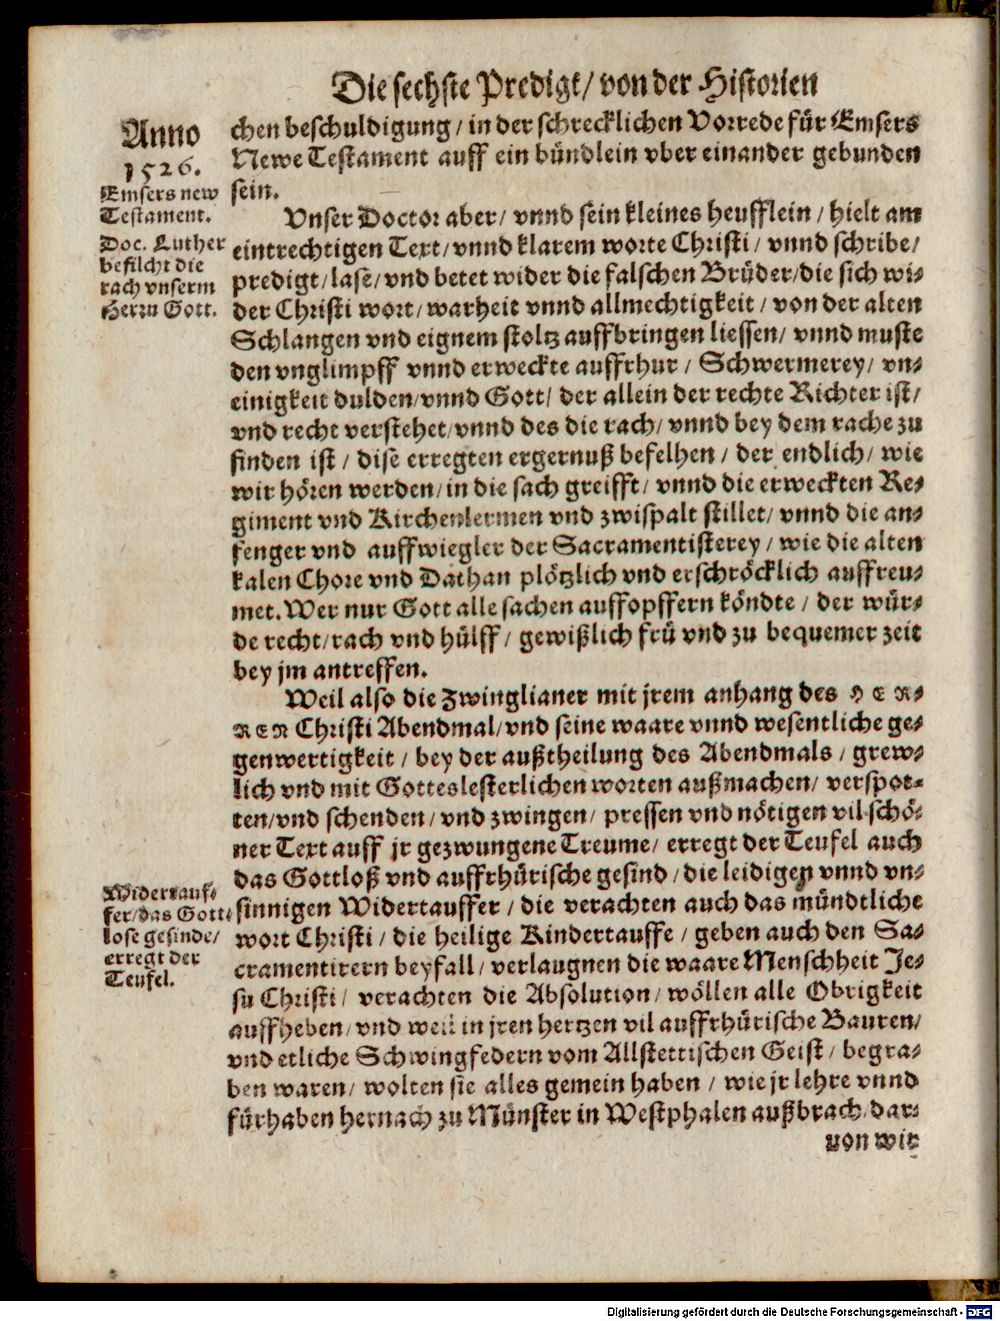 Die sechste Predigt/ von der Historien
Anno
1526.
Emsers new
Testament.
Doc. Luther
befilcht die
rach vnserm
Herrn Gott.
chen beschuldigung/ in der schrecklichen Vorrede für Emsers
Newe Testament auff ein bündlein vber einander gebunden
sein.
Vnser Doctor aber/ vnnd sein kleines heufflein/ hielt am
eintrechtigen Text/ vnnd klarem worte Christi/ vnnd schribe/
predigt/ lase/ vnd betet wider die falschen Brüder/ die sich wi-
der Christi wort/ warheit vnnd allmechtigkeit/ von der alten
Schlangen vnd eignem stoltz auffbringen liessen/ vnnd muste
den vnglimpff vnnd erweckte auffrhur/ Schwermerey/ vn-
einigkeit dulden/ vnnd Gott/ der allein der rechte Richter ist/
vnd recht verstehet/ vnnd des die rach/ vnnd bey dem rache zu
finden ist/ dise erregten ergernuß befelhen/ der endlich/ wie
wir hören werden/ in die sach greifft/ vnnd die erweckten Re-
giment vnd Kirchenlermen vnd zwispalt stillet/ vnnd die an-
fenger vnd auffwiegler der Sacramentisterey/ wie die alten
kalen Chore vnd Dathan plötzlich vnd erschröcklich auffreu-
met. Wer nur Gott alle sachen auffopffern köndte/ der wür-
de recht/ rach vnd hülff/ gewißlich frü vnd zu bequemer zeit
bey jm antreffen.
Weil also die Zwinglianer mit jrem anhang des HER-
REN Christi Abendmal/ vnd seine waare vnnd wesentliche ge-
genwertigkeit/ bey der außtheilung des Abendmals/ grew-
lich vnd mit Gotteslesterlichen worten außmachen/ verspot-
ten/ vnd schenden/ vnd zwingen/ pressen vnd nötigen vil schö-
ner Text auff jr gezwungene Treume/ erregt der Teufel auch
das Gottloß vnd auffrhürische gesind/ die leidigen vnnd vn-
sinnigen Widertauffer/ die verachten auch das mündtliche
wort Christi/ die heilige Kindertauffe/ geben auch den Sa-
cramentirern beyfall/ verlaugnen die waare Menschheit Je-
su Christi/ verachten die Absolution/ wöllen alle Obrigkeit
auffheben/ vnd weil in jren hertzen vil auffrhürische Bauren/
vnd etliche Schwingfedern vom Allstettischen Geist/ begra-
ben waren/ wolten sie alles gemein haben/ wie jr lehre vnnd
fürhaben hernach zu Münster in Westphalen außbrach/ dar-
Widertauf-
fer/ das Gott-
lose gesinde/
erregt der
Teufel.
von wir
Digitalisierung gefördert durch die Deutsche Forschungsgemeinschaft - DFG